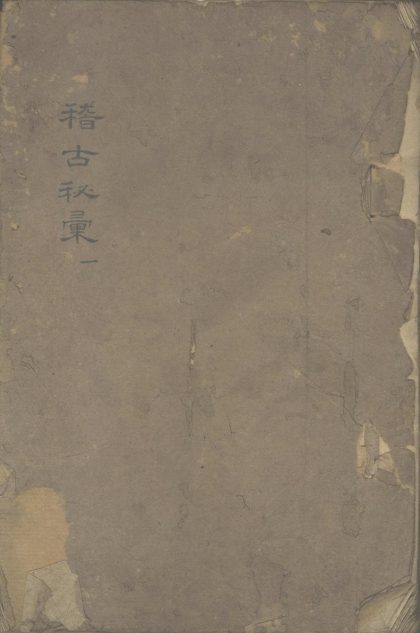 稽古秘彙一